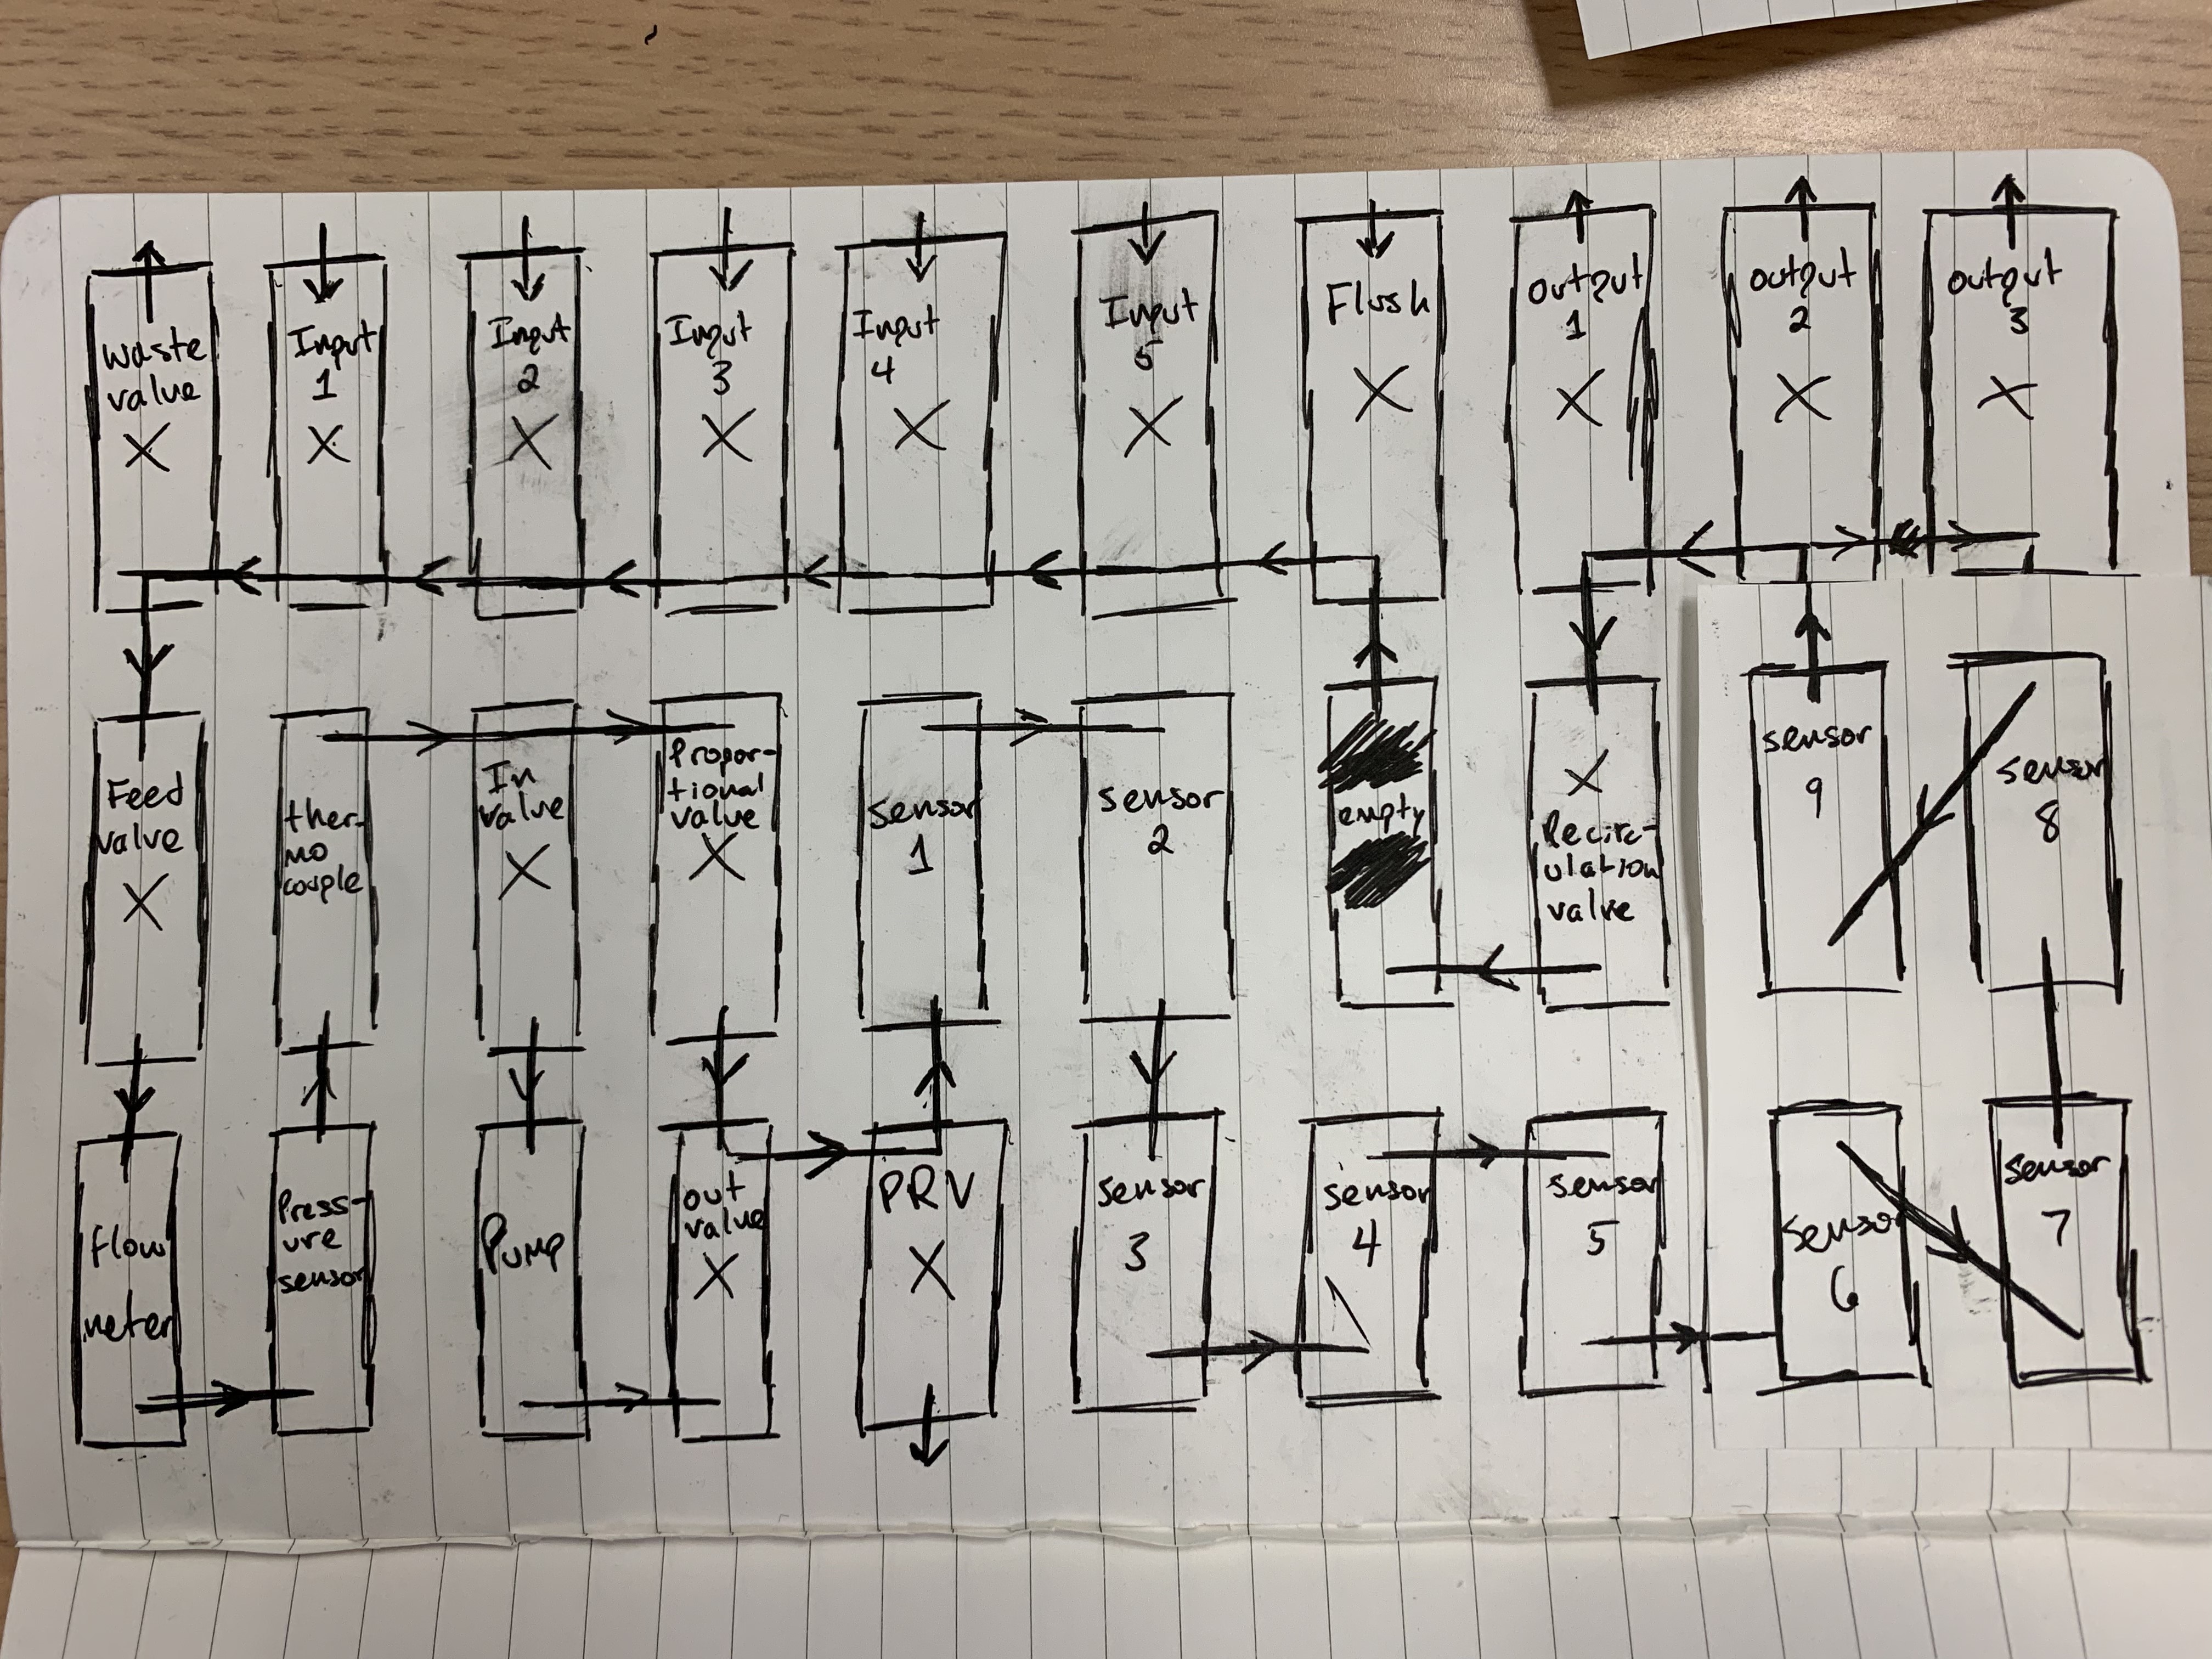 waste
valve
X
Input
1
X
Input
2
X
Input
3
X
Input
4
X
Input
5
X
Flush
X
Output
1
X
output
2
X
output
3
X
Feed
valve
X
ther-
mo
couple
In
valve
X
Propor-
tional
valve
X
sensor
1
sensor
2
empty
X
Recirc-
ulation
valve
sensor
9
sensor
8
flow
meter
Press-
ure
sensor
Pump
out
valve
X
PRV
X
sensor
3
sensor
4
sensor
5
sensor
6
sensor
7